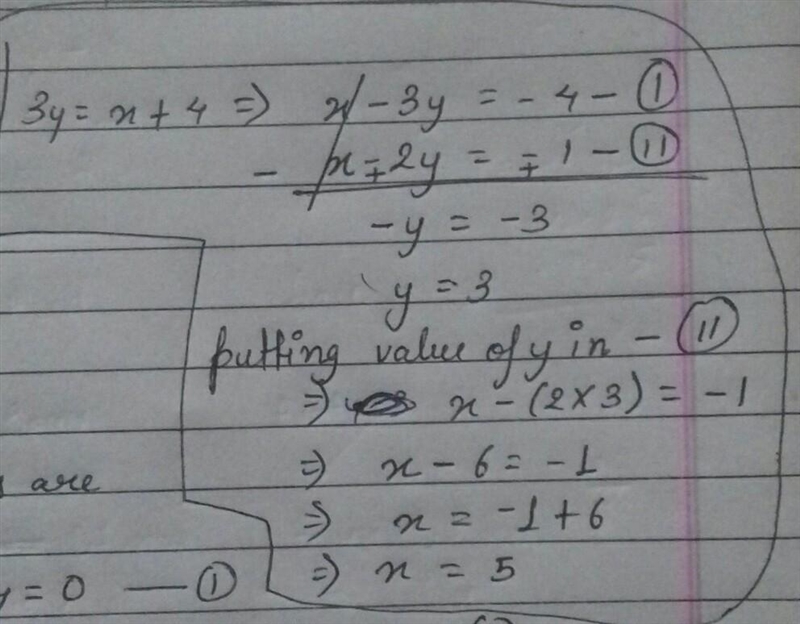 3y = x + 4 ⇒ x - 3y = - 4 - (I)
- x ∓ 2y = ∓ 1 - (II)
- y = - 3
y = 3
putting value of y in - (II)
⇒ x - (2 × 3) = - 1
⇒ x - 6 = - 1
are
⇒ x = - 1 + 6
⇒ x = 5
= 0 — (I)